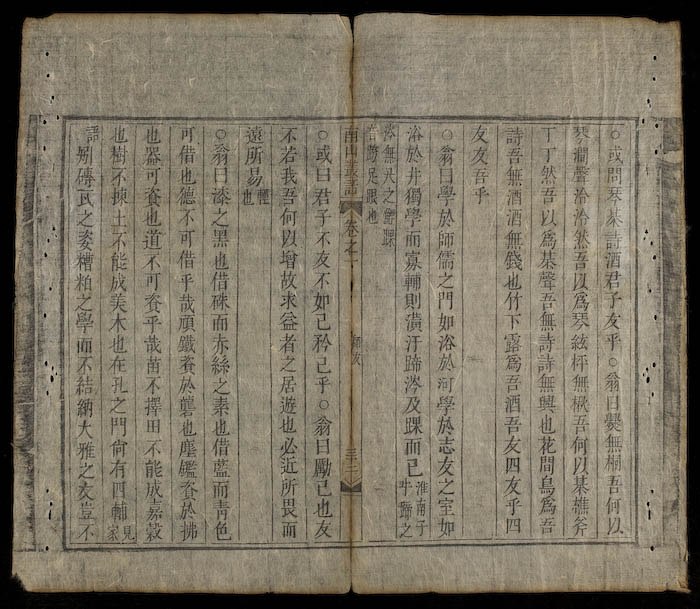 ○或問琴棊詩酒君子友乎○翁曰爨無桐吾何以
琴澗聲泠泠然吾以為琴絃枰無楸吾何以棊樵斧
丁丁然吾以爲棊聲吾無詩詩無興也花間鳥爲吾
詩吾無酒酒無錢也竹下露爲吾酒吾友四友乎四
友友吾乎
○翁曰學於師儒之門如浴於河學於志友之室如
浴於井獨學而寡輔則潢汙蹄涔及踝而已
淮南子
牛蹄之
涔無尺之鯉踝
音踝足跟也
南山叢話
卷之一
師友
三二
○或曰君子不友不如己矜己乎○翁曰勵己也友
不若我吾何以增故求益者之居遊也必近所畏而
遠所易
輕
也
○翁曰漆之黑也借硃而赤絲之素也借藍而青色
可借也德不可借乎哉頑鐵資於礱也塵鑑資於拂
也器可資也道不可資乎哉苗不擇田不能成嘉穀
也樹不揀土不能成美木也在孔之門尙有四輔
見
家
語
矧磚瓦之姿糟粕之學而不結納大雅之友豈不